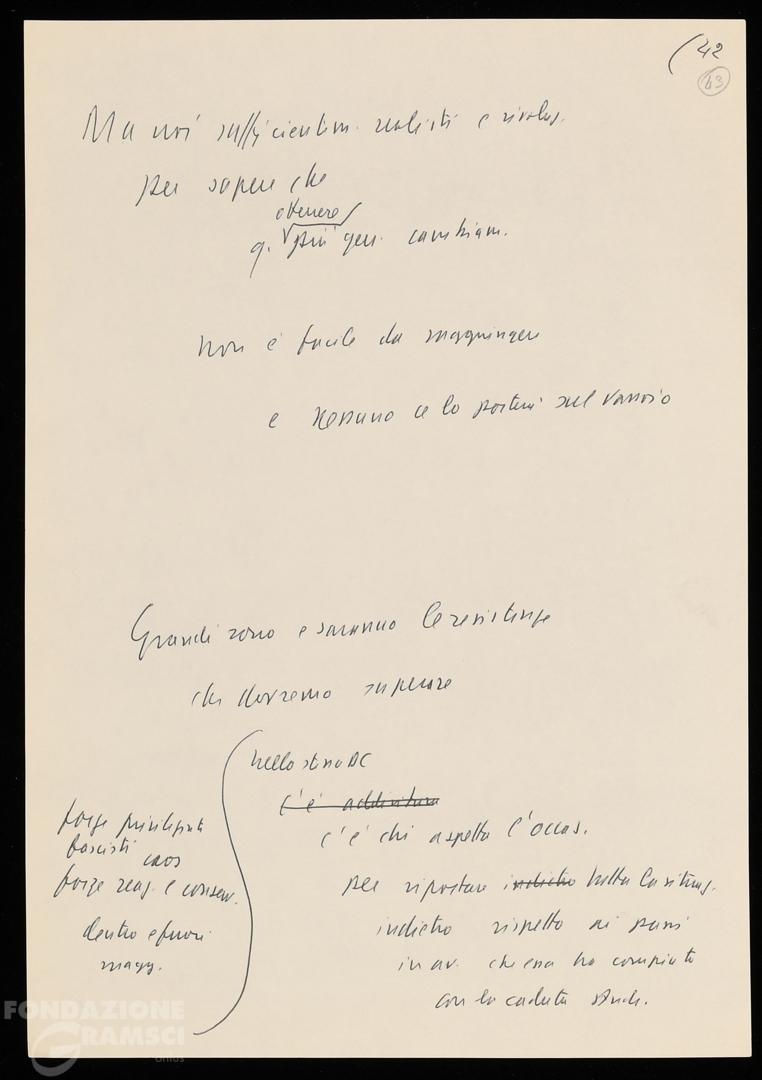 (42
43
Ma noi sufficientem. realisti e rivoluz.
per sapere che
ottenere
q. più gen. cambiam.
non è facile da raggiungere
e nessuno ce lo porterà sul vassoio
Grandi sono e saranno le resistenze
che dovremo superare
nello stesso DC
c'è addirittura
c'è chi aspetta l'occas.
per riportare indietro tutta la situaz.
indietro rispetto ai passi
in av. che essa ha compiuto
con la caduta Andr.
forze privilegiati
fascisti
caos
forze reaz. e conserv.
dentro e fuori
magg.
FONDAZIONE
GRAMSCI
onlus